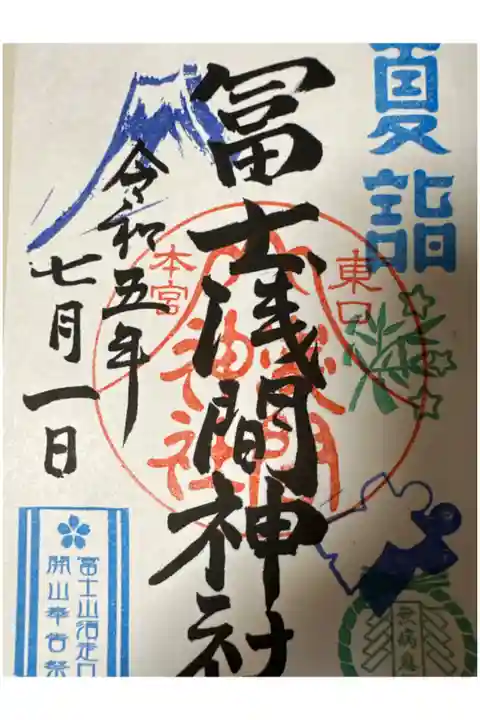 夏詣
東口
本宮
冨士浅間神社
令和五年
七月一日
冨士山須走口
開山奉告祭
無病息